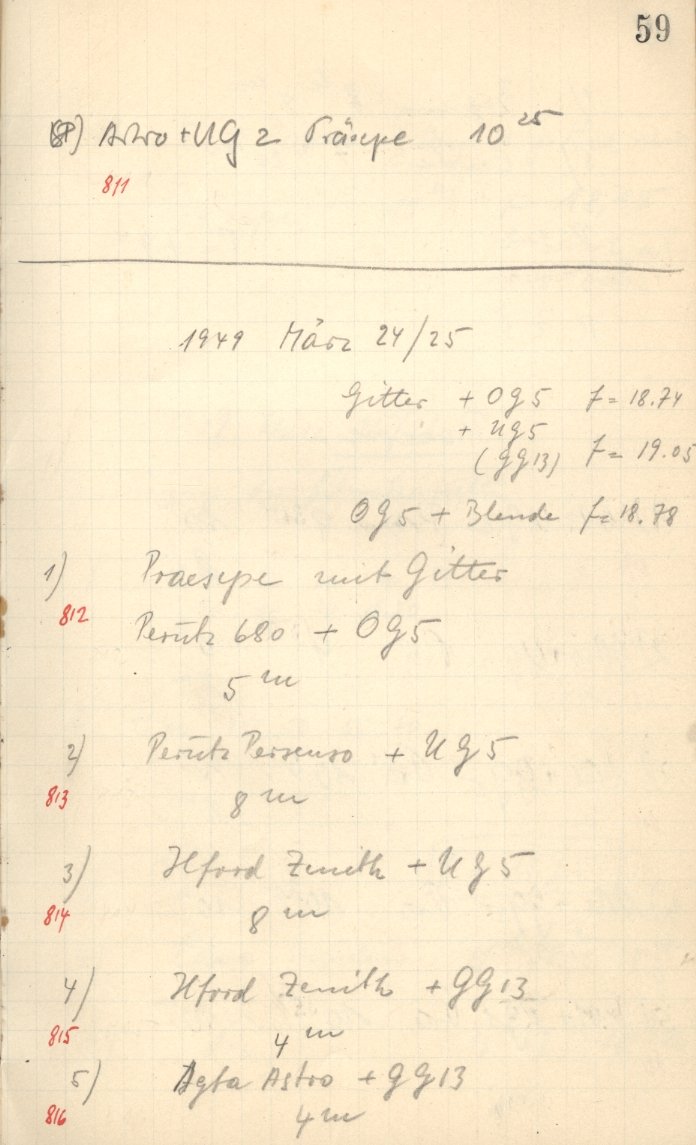 59
Astro + UG 2 Präsepe 10 25
811
1949 März 24/25
Gitter + OG5 f = 18.74
+ UG5
(GG13) f = 19.05
OG5 + Blende f = 18.78
1) Praesepe mit Gitter
812
Perutz 680 + OG5
5 m
2) Perutz Persenso + UG5
813
8 m
3) Ilford Zenith + UG5
814
8 m
4) Ilford Zenith + GG13
815
4 m
5) Agfa Astro + GG13
816
4 m